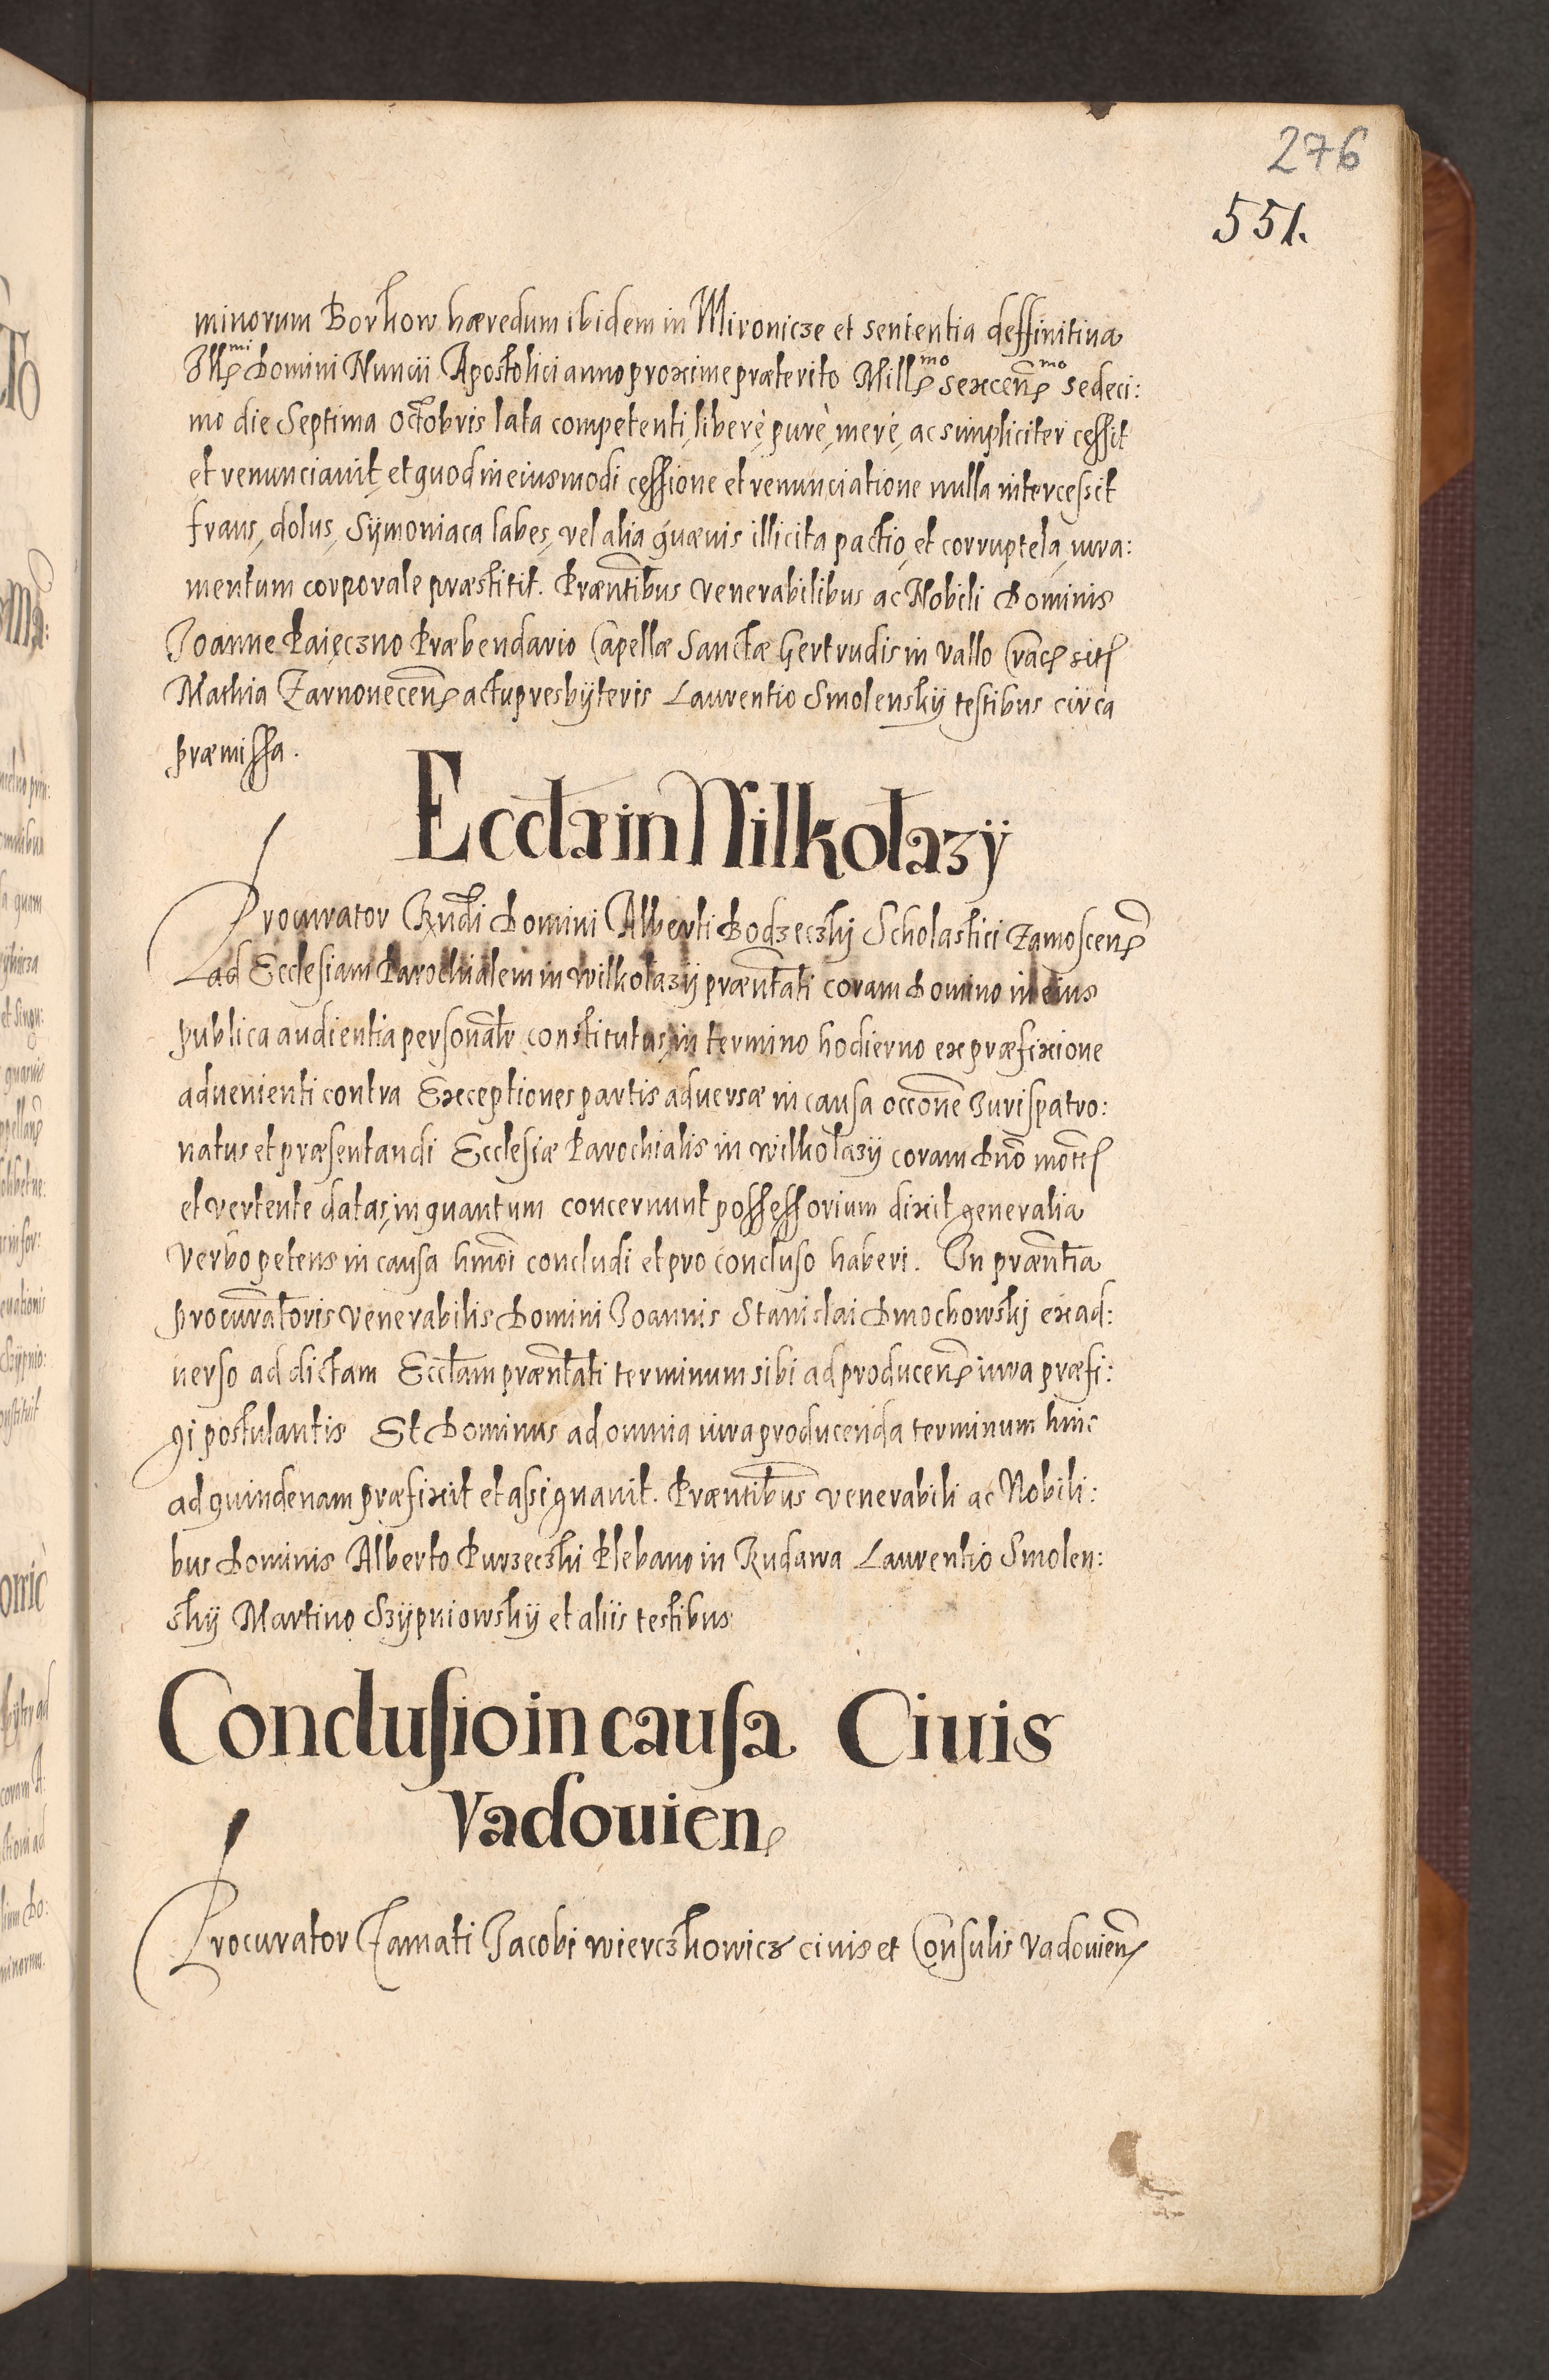 276
551.
minorum Borkow hæredum ibidem in Mironicze et sententia deffinitiua
Illmi Domini Nuncii Apostolici anno proxime præterito Mill.mo sexcen.mo sedeci:
mo die Septima Octobris lata competenti, liberè, purè, merè, ac simpliciter cessit
et renunciauit, et quod in eiusmodi cessione et renunciatione nulla intercessit
fraus, dolus, Sÿmoniaca labes, vel alia quæuis illicita pactio, et corruptela, iura:
mentum corporale præstitit. Præntibus venerabilibus ac Nobili Dominis
Joanne Paięczno Præbendario Capellæ Sanctæ Gertrudis in vallo Crac. sit.
Mathia Zarnonecen. actu presbÿteris Laurentio Smolenskÿ testibus circa
præmissa.
Eccla in Wilkołazÿ
Procurator Rndi Domini Alberti Bodzeczkÿ Scholastici Zamoscen.
ad Ecclesiam Parochialem in Wilkołazÿ præntati coram Domino in eius
publica audientia personalr constitutas, in termino hodierno ex præfixione
aduenienti contra Exceptiones partis aduersæ in causa occone Juris patro:
natus et præsentandi Ecclesiæ Parochialis in Wilkołazÿ coram Dno mot.
et vertente datas, in quantum concernunt possessorium dixit generalia
verbo petens in causa hmoi concludi et pro concluso haberi. In præntia
procuratoris venerabilis Domini Joannis Stanislai Dmochowskj ex ad:
uerso ad dictam Ecclam præntati terminum sibi ad producen. iura præfi:
gi postulantis Et Dominus ad omnia iura producenda terminum hinc
ad quindenam præfixit et assignauit. Præntibus venerabili ac Nobili:
bus Dominis Alberto Purzeczki Plebano in Rudawa Laurentio Smolen:
skÿ Martino Szÿpniowskÿ et aliis testibus
Conclusio in causa Ciuis
Vadouien.
Procurator Famati Jacobi Wierczkowicz ciuis et Consulis Vadouien.